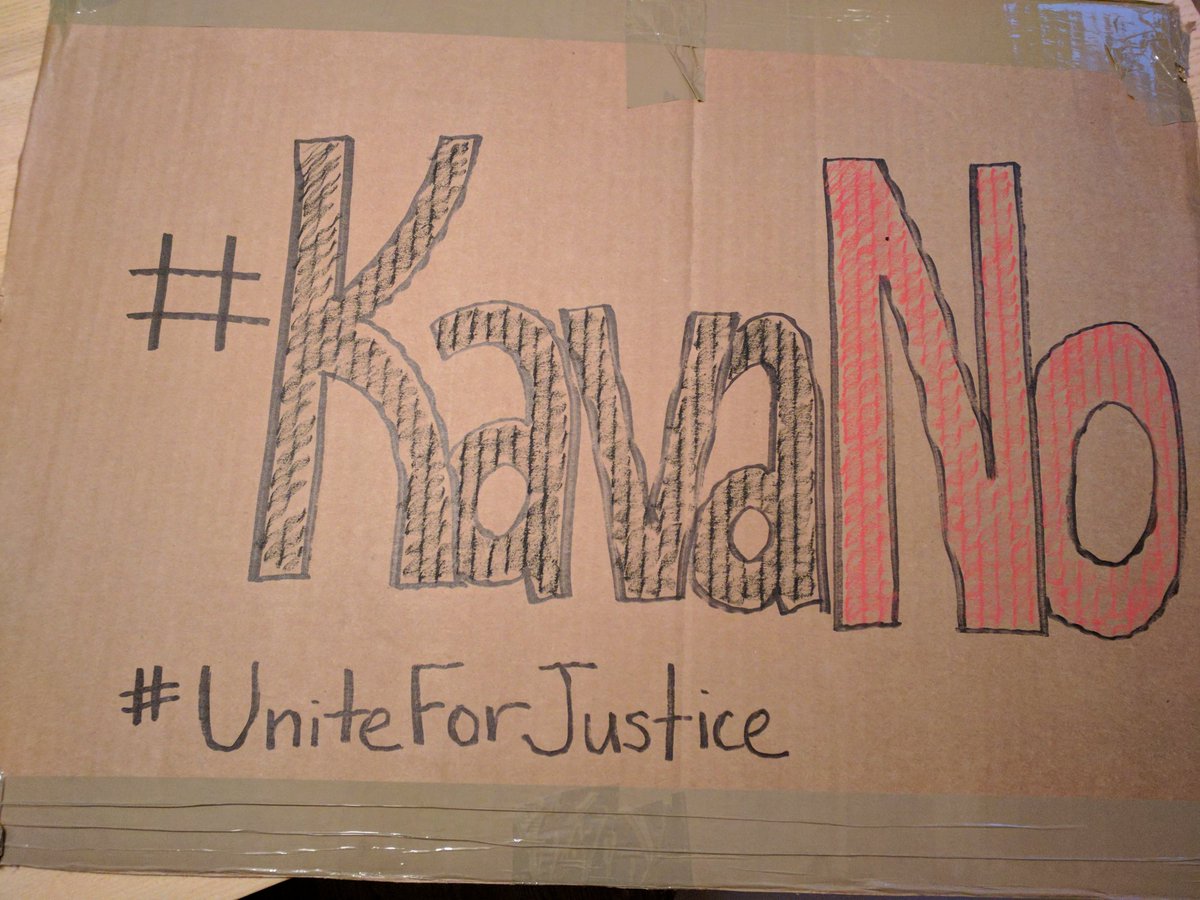 #KavaNo
#UniteForJustice